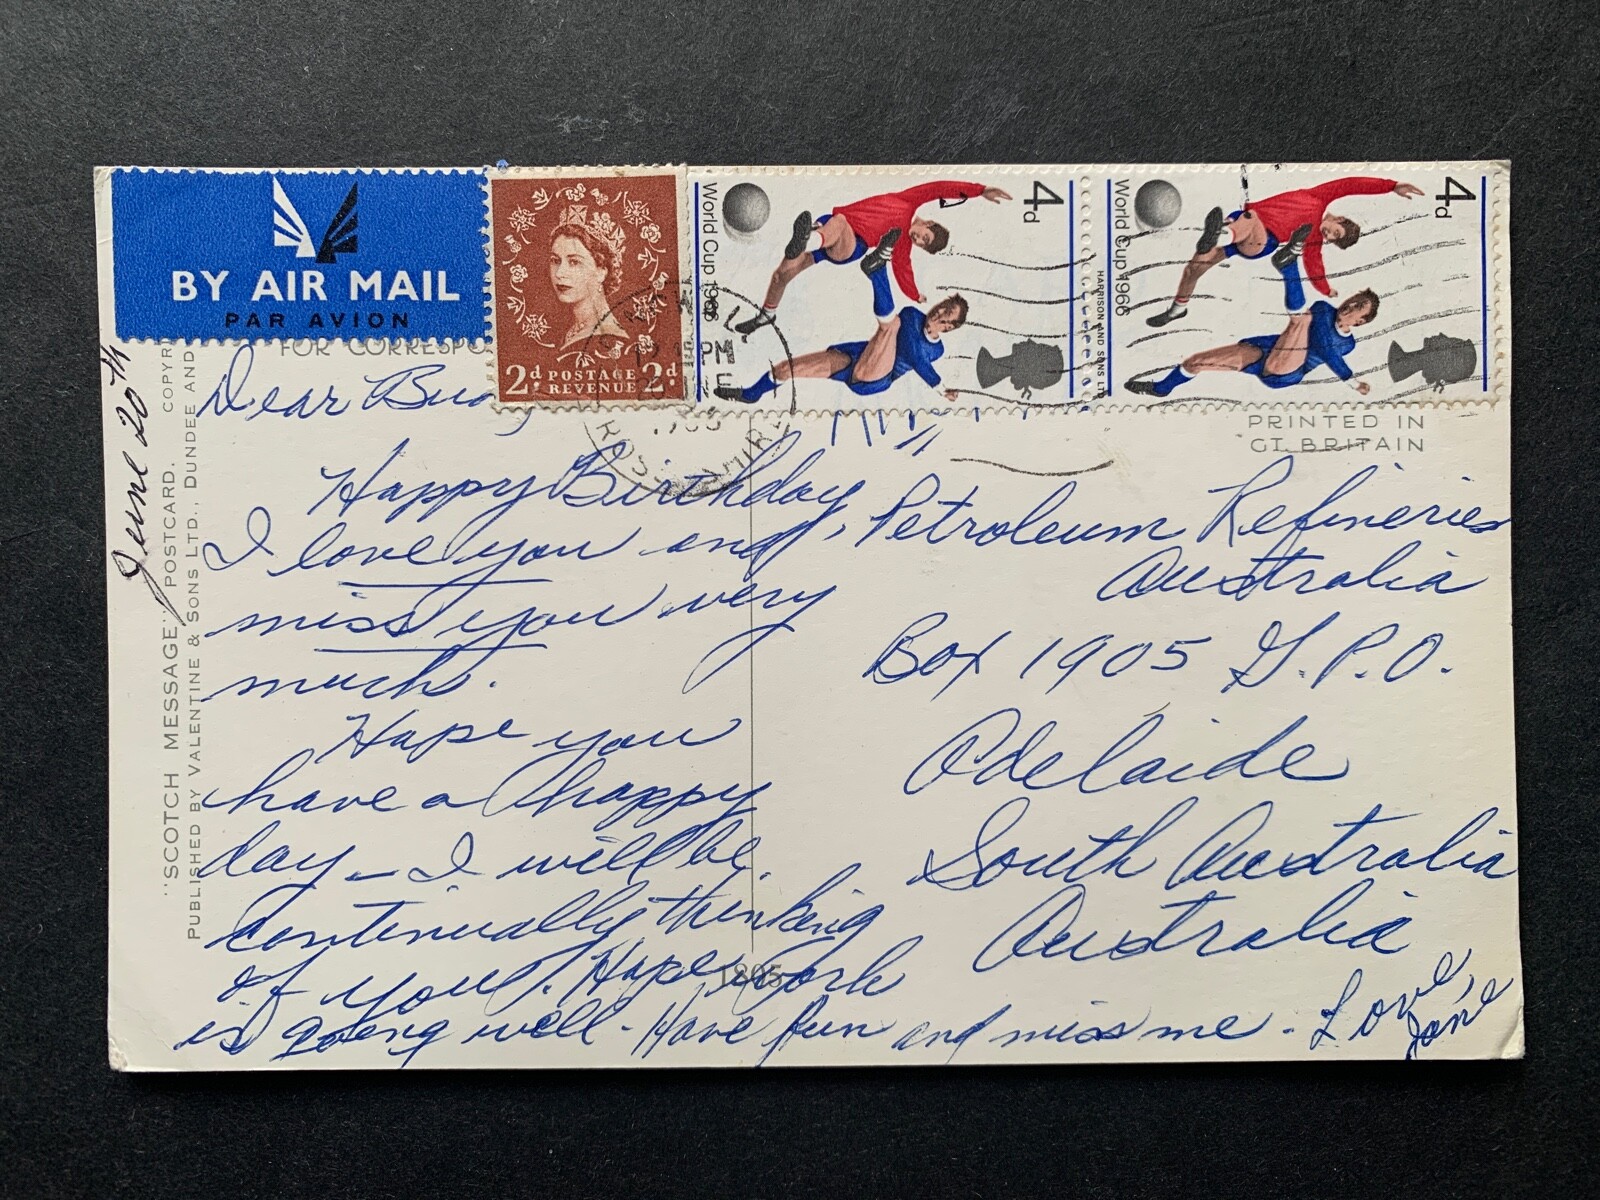 BY AIR MAIL
PAR AVION
2d POSTAGE REVENUE 2d
World Cup 1966
4d
HARRISON AND SONS LTD
World Cup 1966
4d
PM
FOR CORRESPO
PRINTED IN
GT. BRITAIN
June 20th
"SCOTCH MESSAGE" POSTCARD. COPYRI
PUBLISHED BY VALENTINE & SONS LTD., DUNDEE AND
Dear
Happy Birthday,
I love you and
miss you very
much.
Hope you
have a happy
day - I will be
continually thinking
of you. Hope work
is going well - Have fun and miss me - Love,
Jane
Petroleum Refineries
Australia
Box 1905 G.P.O.
Adelaide
South Australia
Australia
1805